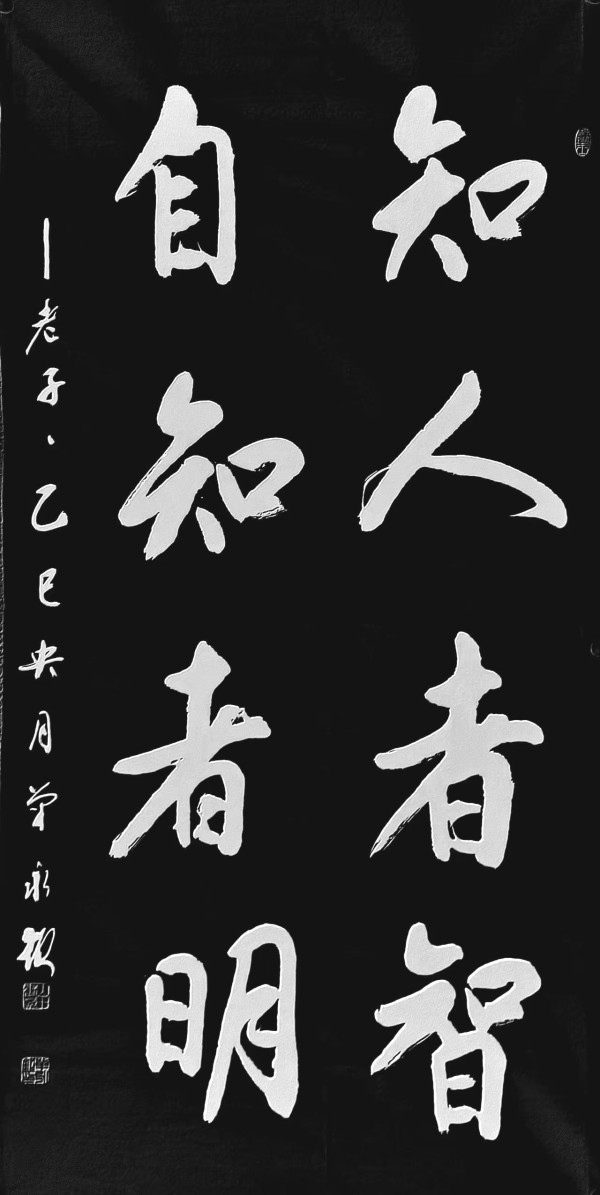 知人者智
自知者明
老子、乙巳
月
永